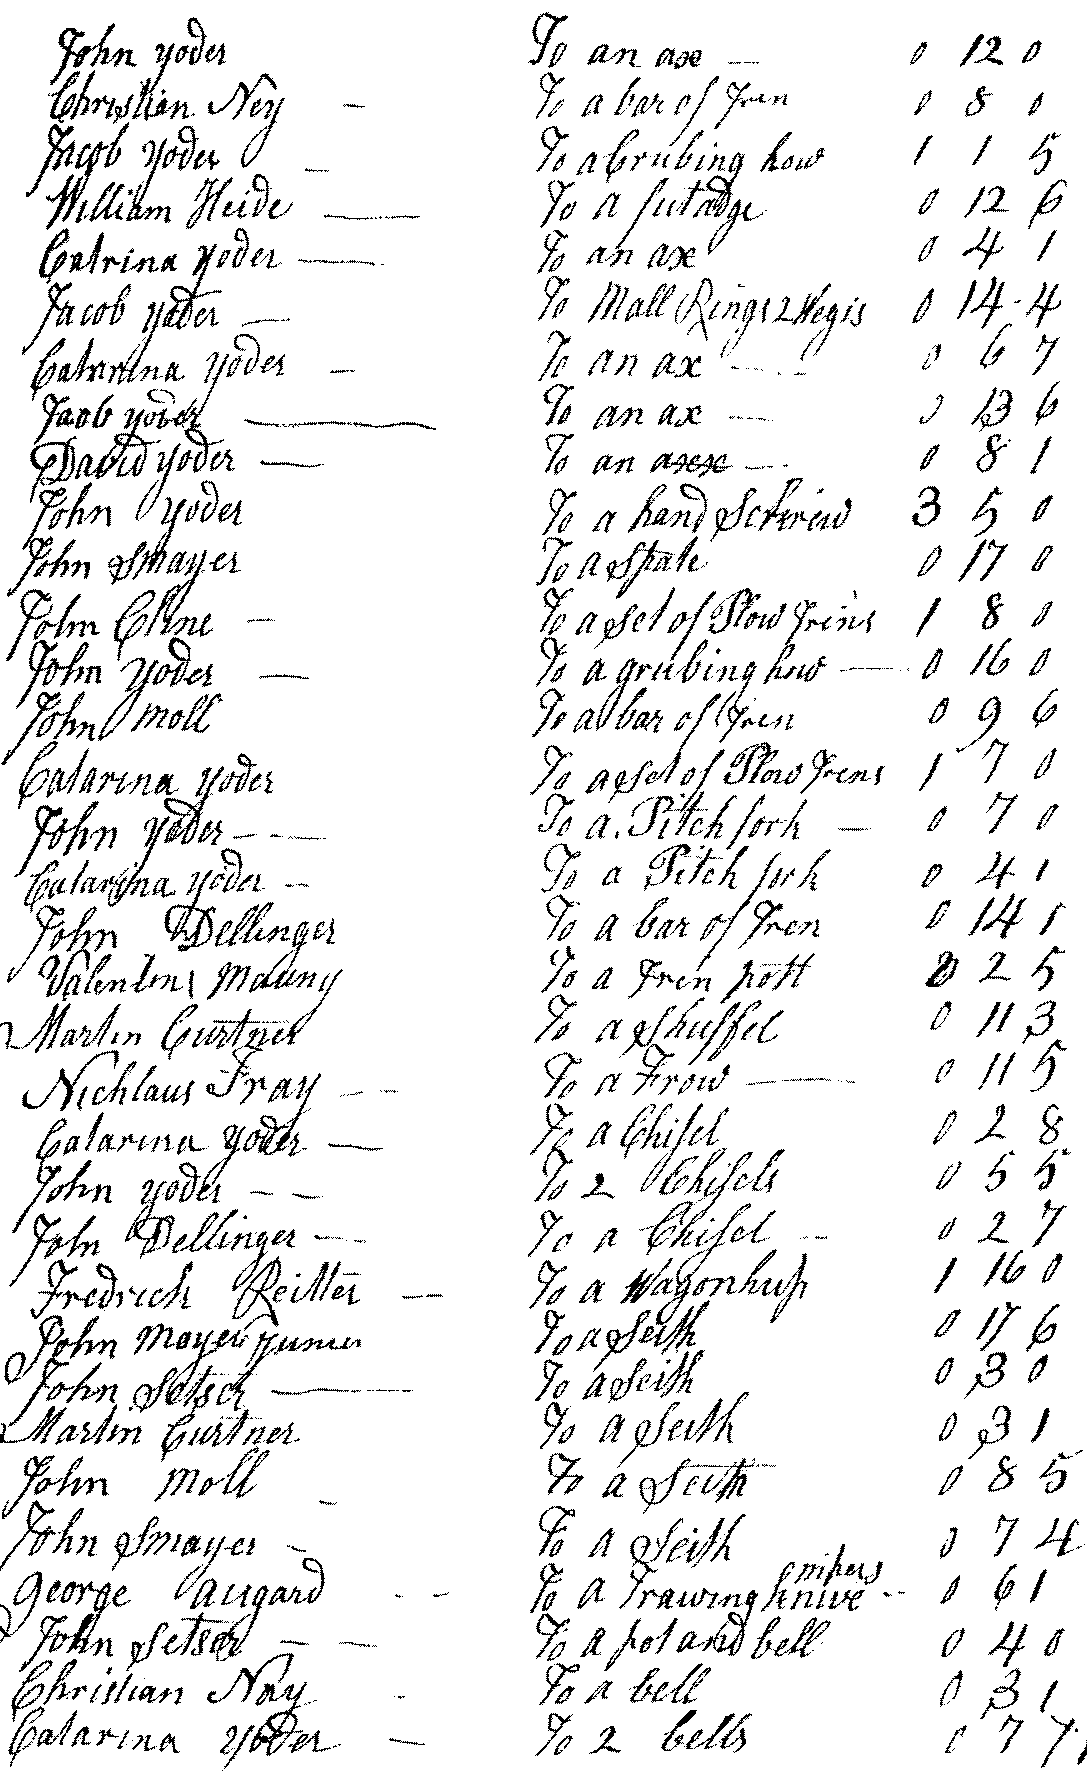 John Yoder To an axe — 0 12 0
Christian Ney — To a bar of Iren 0 8 0
Jacob Yoder — To a Grubing how 1 1 5
William Heide — To a 0 12 6
Catrina Yoder — To an ax 0 4 1
Jacob Yoder — To Mall Rings 2 Wegis 0 14 4
Catarina Yoder — To an ax — 0 6 7
Jacob Yoder — To an ax — 0 13 6
David Yoder — To an axe — 0 8 1
John Yoder To a hand Schriew 3 5 0
John Smayer To a Spate 0 17 0
John Cline — To a Set of Plow Irins 1 8 0
John Yoder — To a grubing how — 0 16 0
John Moll To a bar of Iren 0 9 6
Catarina Yoder To a Set of Plow Irens 1 7 0
John Yoder — To a Pitch fork — 0 7 0
Catarina Yoder — To a Pitch fork 0 4 1
John Dellinger To a bar of Iren 0 14 1
Valentin Mauny To a Iren pott 2 5
Martin Curtner To a Shuffel 0 11 3
Nichlaus Fray — To a Frow — 0 11 5
Catarina Yoder — To a Chisel 0 2 8
John Yoder — To 2 Chisels 0 5 5
John Dellinger — To a Chisel — 0 2 7
Fredrich Reitter — To a Wagonhup 1 16 0
John Mayer Yunier To a Seith 0 17 6
John Setser — To a Seith 0 3 0
Martin Curtner To a Seith 0 3 1
John Moll — To a Seith 0 8 5
John Smayer — To a Seith 0 7 4
nipers
George Augard — To a Trawing knive — 0 6 1
John Setser — To a pot and bell 0 4 0
Christian Nay — To a bell 0 3 1
Catarina Yoder — To 2 bells 0 7 7